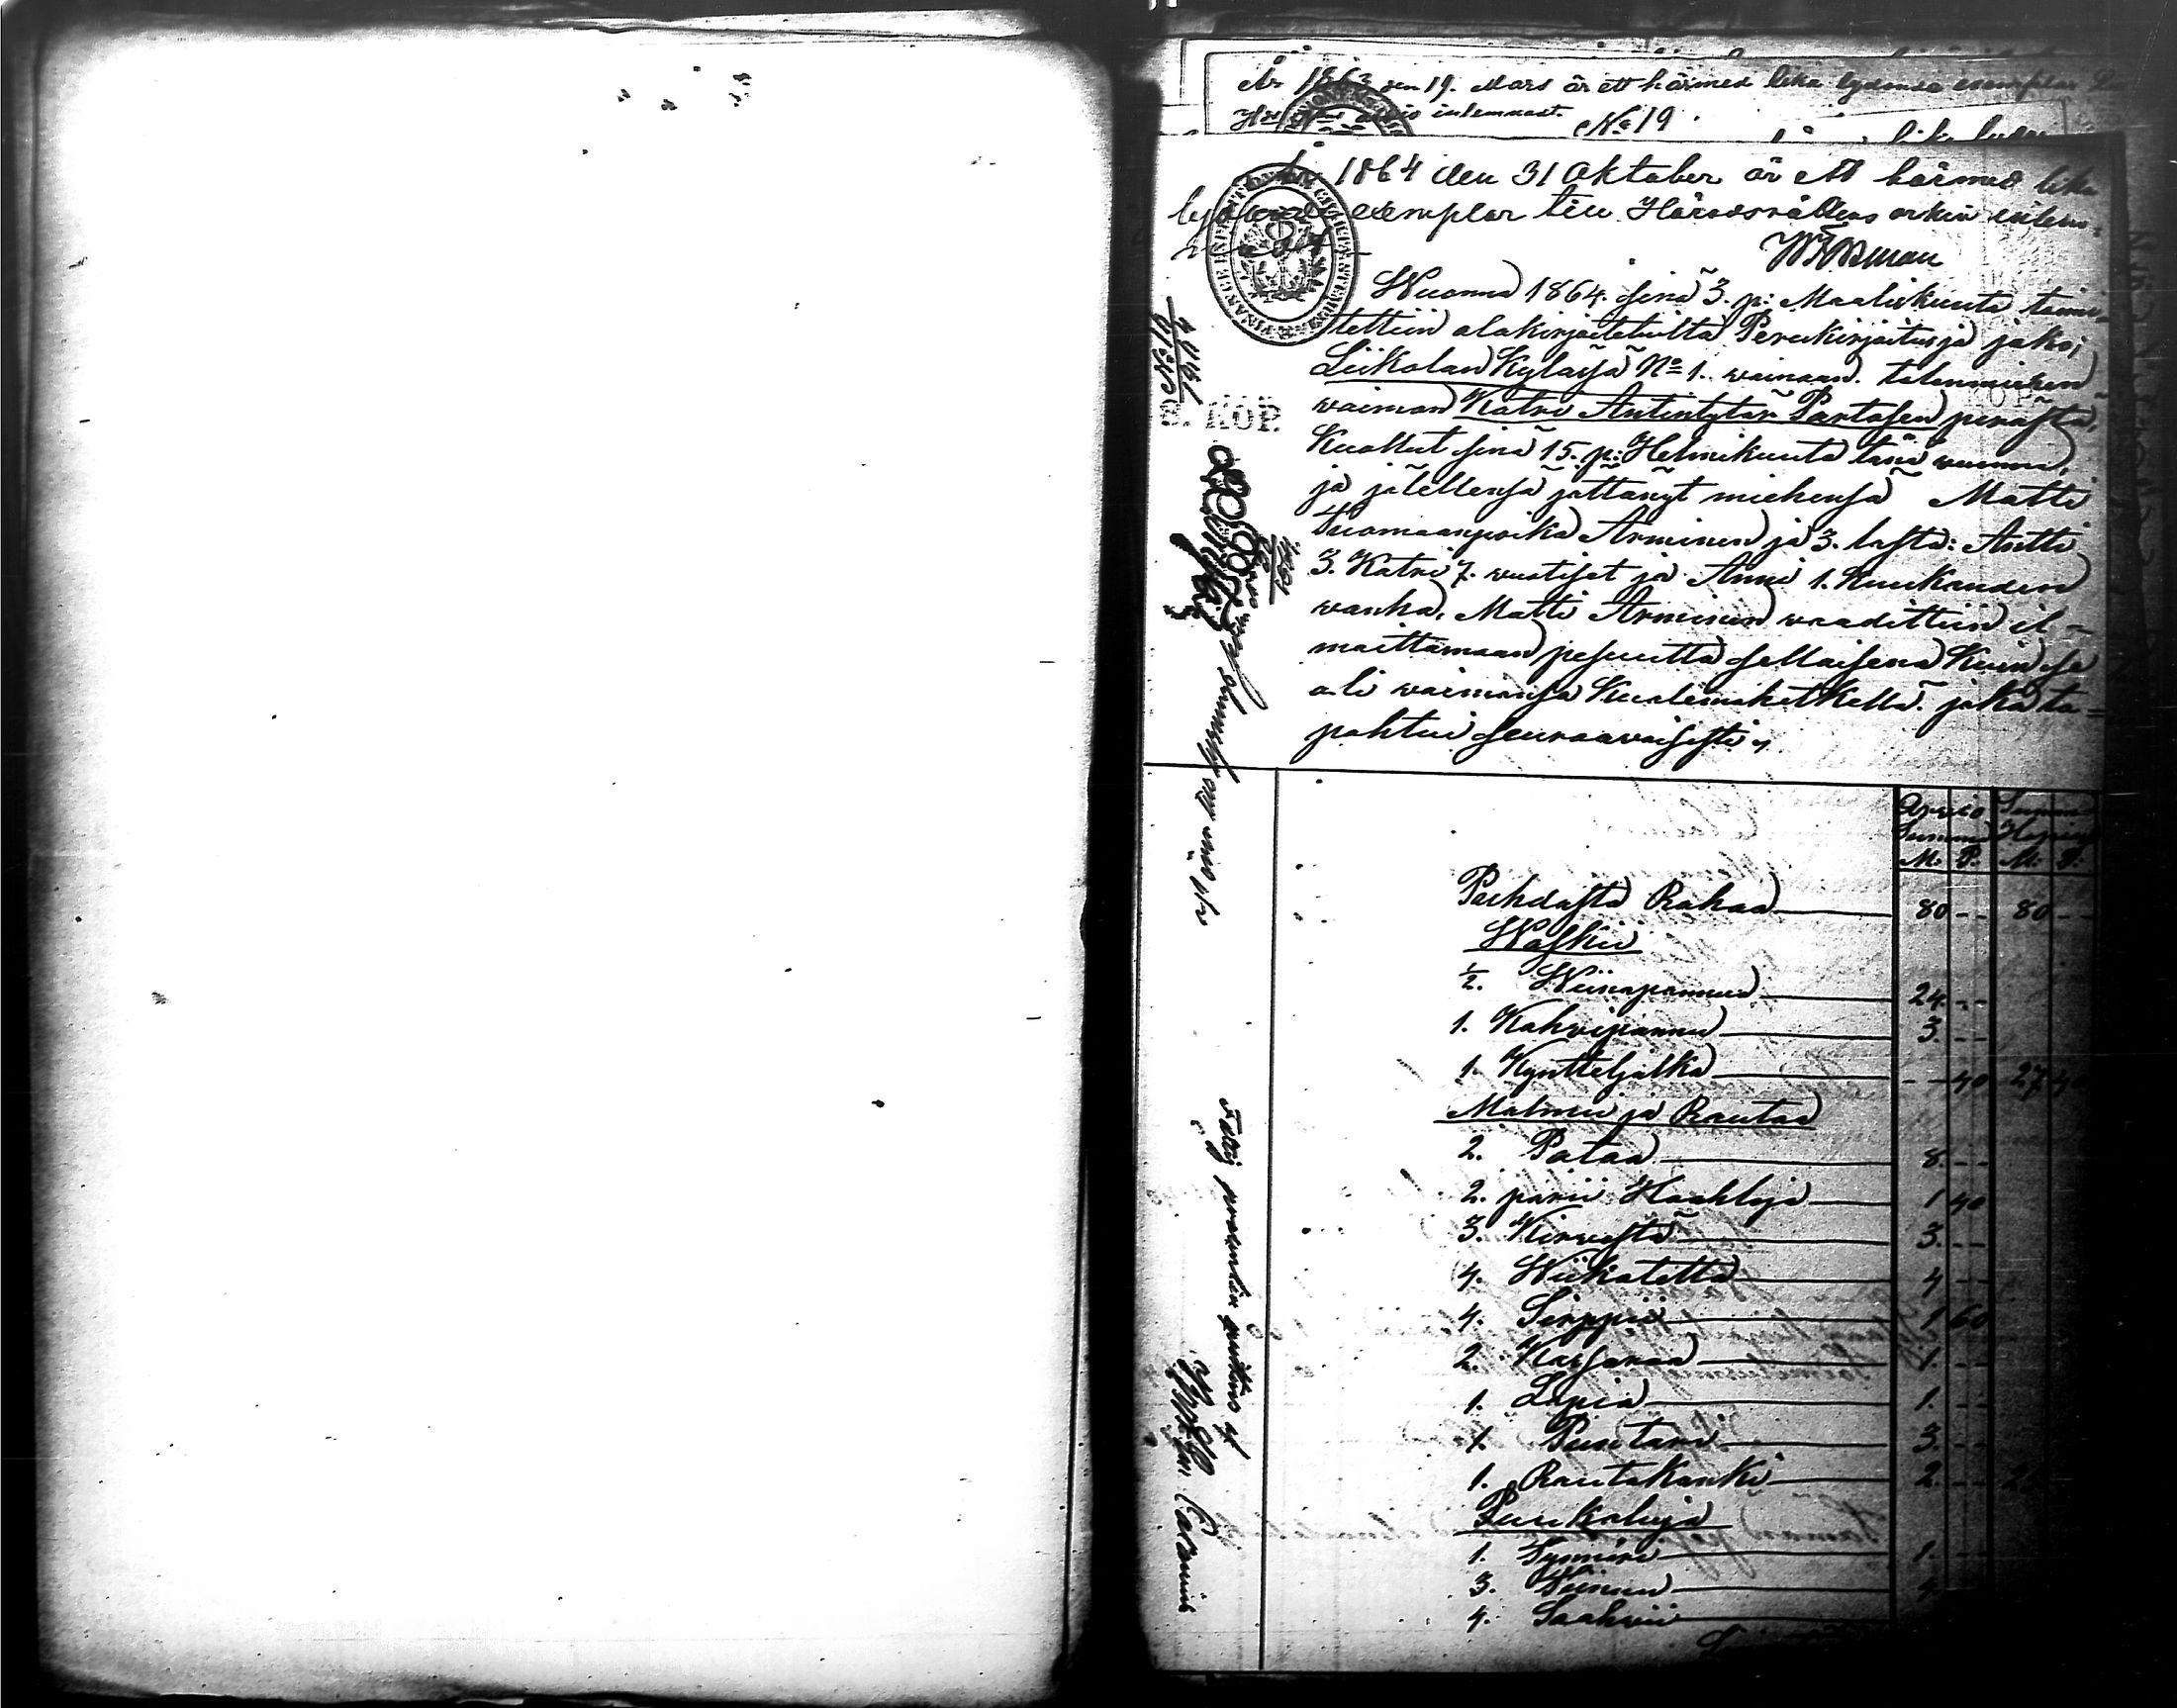 År 1863 den 19. Mars är ett härmed lika lydande exemplar
inlemnadt.
No 19
År 1864 den 31 Oktober är ett härmed lika
lydande exemplar till Häradsrättens arkiv inlem-
nadt
Wuonna 1864. sinä 3. p: Maaliskuuta toimi-
tettiin alakirjoitetuilta Perukirjoitus ja jako;
Liikolan Kylässä No 1. wainaan talonmiehen
waimon Katri Antintytär Partasen perästä,
Kuollut sinä 15. p: Helmikuuta tässä wuonna,
ja jälellensä jättänyt miehensä Matti
Tuomaanpoika Arminen ja 3. lasta: Antti
3. Katri 7. wuotiset ja Anni 1. Kuukauden
wanha, Matti Arminen waadittiin il-
moittamaan pesuutta sellaisena Kuin se
oli waimonsa Kuolemahetkellä. joka ta-
pahtui seuraawaisesti
8. KOP.
Arwio Summa
Summa
M. P. M. P.
Puhdasta Rahaa 80 -- 80 --
Waskii
1/2. Wiinapannua 24. --
1. Kahwipannu 3. --
1. Kyntteljalka -- 40 27 40
Malmii ja Rautaa
2. Pataa 8. --
2. parii Haahloja 1 40
3. Kirwestä 3. --
4. Wiikatetta 4 --
4. Sirppii 1 60
2. Kassaraa 1. --
1. Lapia 1. --
1. Puntari 3. --
1. Rautakanki 2. --
Puukaluja
1. Tynnöri 1. --
3.
4. Saahvii
Fattig procenten quitteras af